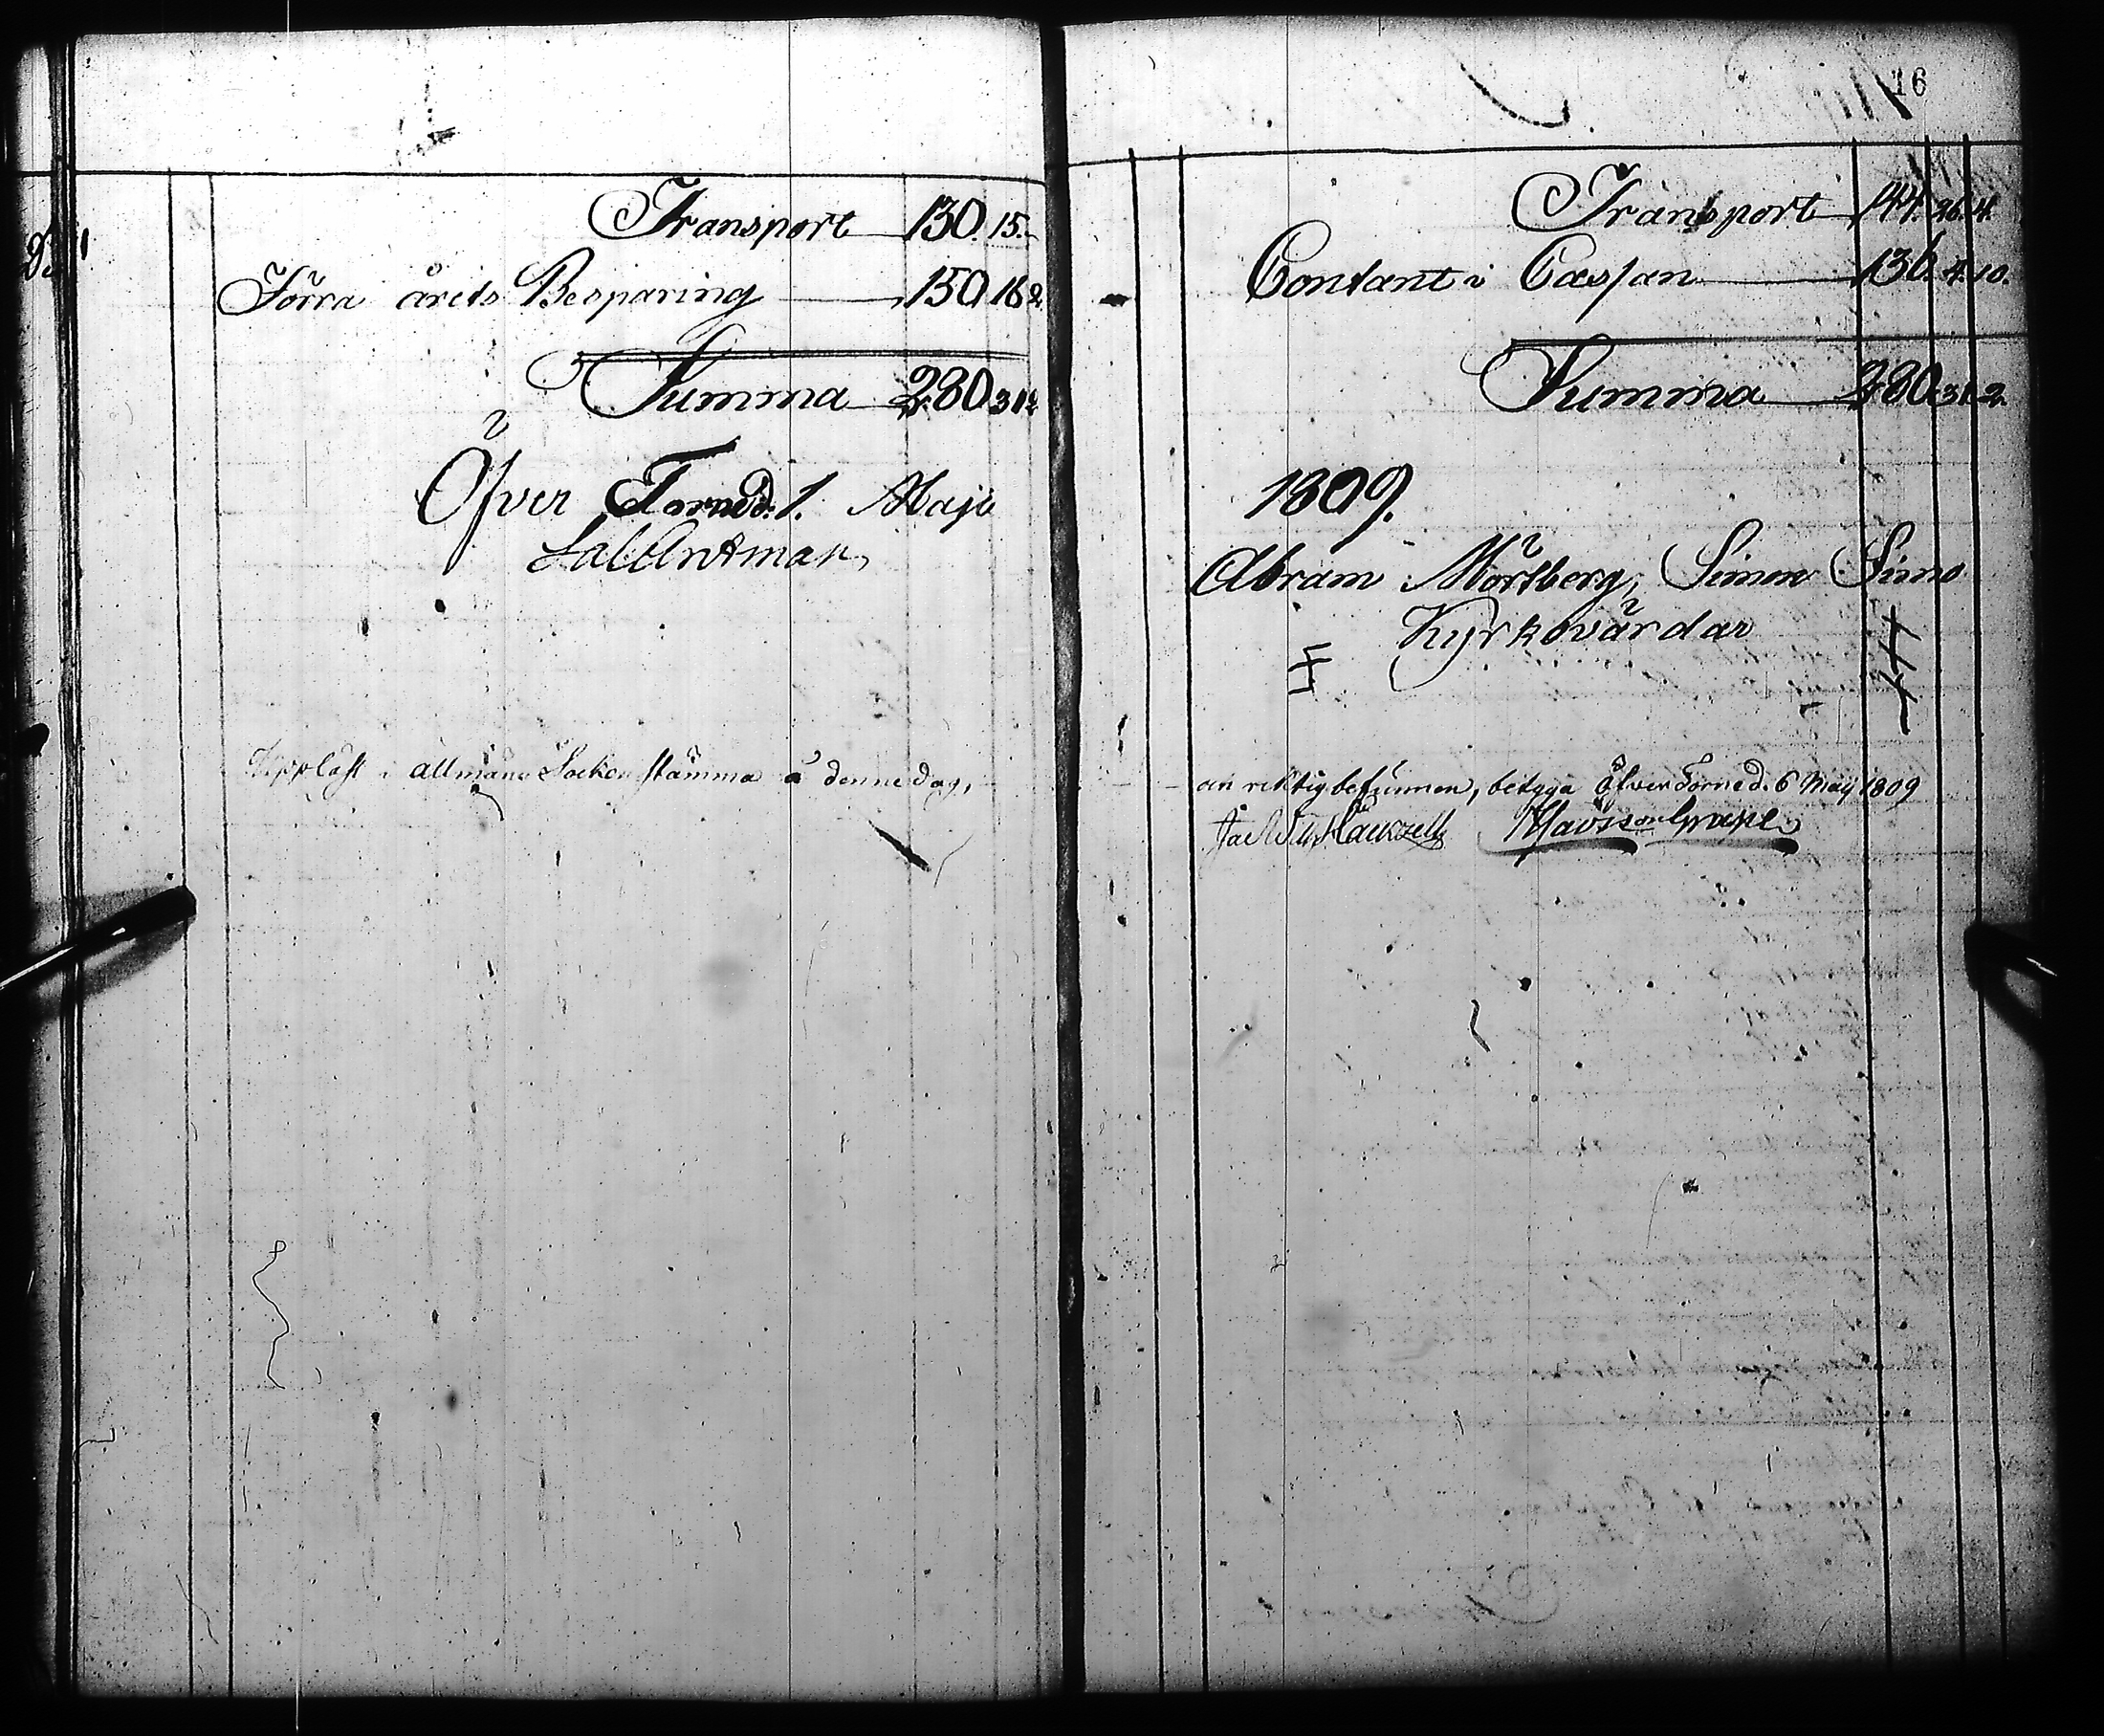 Transport 130. 15.
Förra årets Besparing 150 16 2.
Summa 280 31 2
Öfver Torneå d. 1. Maji
Uppläst i allmän Socken stämma å denne dag,
16
Transport 144. 26. 4.
Contant i Cassan 136. 4. 10.
Summa 280. 31. 2.
1809.
Abram Mörtberg, Simon Simo
Kyrkovärdar
riktig befunnen, betyga Öfver Torneå d. 6 Maij 1809